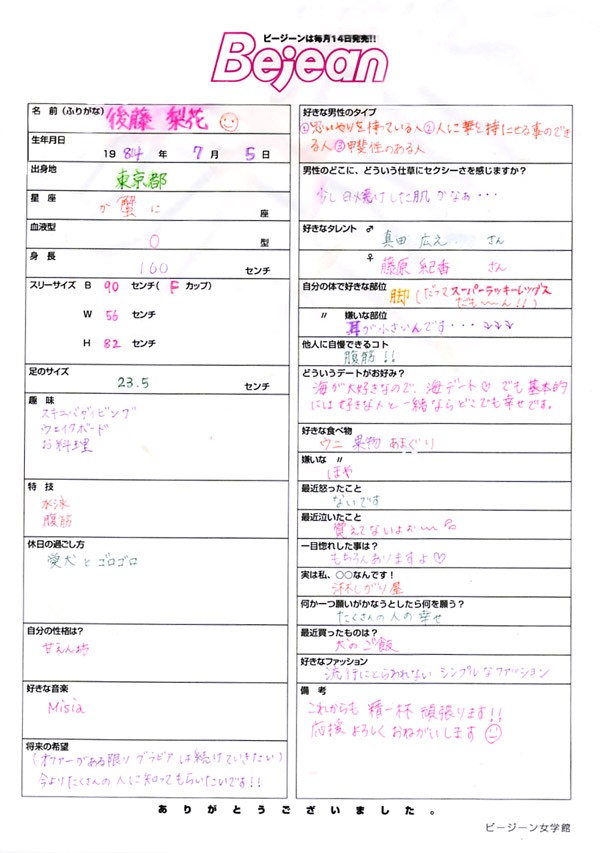 ビージーンは毎月14日発売!!
Bejean
名 前 (ふりがな) 後藤 梨花
生年月日
19 84 年 7 月 5 日
出身地
東京都
星 座
か 蟹 に 座
血液型
O 型
身 長
160 センチ
スリーサイズ B 90 センチ( F カップ)
W 56 センチ
H 82 センチ
足のサイズ
23.5 センチ
趣 味
スキューバダイビング
ウェイクボード
お料理
特 技
水泳
腹筋
休日の過ごし方
愛犬とゴロゴロ
自分の性格は?
甘えん坊
好きな音楽
Misia
将来の希望
(オファーがある限り グラビアは続けていきたい)
今よりたくさんの人に知ってもらいたいです!!
好きな男性のタイプ
①思いやりを持っている人②人に華を持たせる事のでき
る人③甲斐性のある人
男性のどこに、どういう仕草にセクシーさを感じますか?
少し日焼けした肌かなぁ・・・
好きなタレント ♂
真田 広え さん
♀
藤原 紀香 さん
自分の体で好きな部位
脚(だってスーパーラッキーレッグス
だも〜ん!!)
〃 嫌いな部位
耳が小さいんです・・・
他人に自慢できるコト
腹筋!!
どういうデートがお好み?
海が大好きなので、海デート♡ でも基本的
には好きな人と一緒ならどこでも幸せです。
好きな食べ物
ウニ 果物 あまぐり
嫌いな 〃
ほや
最近怒ったこと
ないです
最近泣いたこと
覚えてないよぉ〜
一目惚れした事は?
もちろんありますよ♡
実は私、○○なんです!
淋しがり屋
何か一つ願いがかなうとしたら何を願う?
たくさんの人の幸せ
最近買ったものは?
犬のご飯
好きなファッション
流行にとらわれない シンプルなファッション
備 考
これからも 精一杯 頑張ります!!
応援よろしくおねがいします
ありがとうございました。
ビージーン女学館